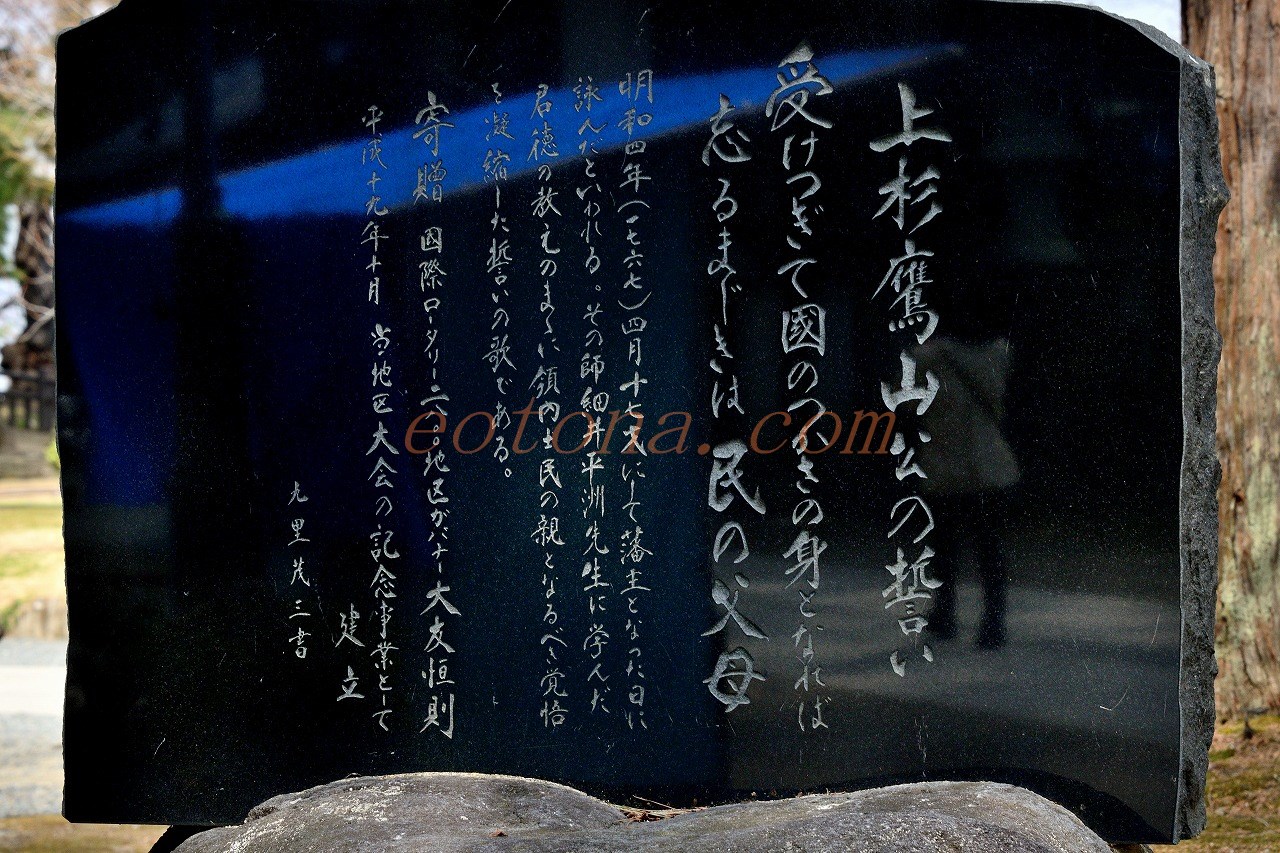 上杉鷹山公の誓い
受けつぎて國のつかさの身となれば
忘るまじきは民の父母
明和四年（一七六七）四月十七才にして藩主となった日に
詠んだといわれる。その師細井平洲先生に学んだ
君徳の教えのまゝに領内士民の親となるべき覚悟
を凝縮した誓いの歌である。
寄贈 国際ロータリー二八〇地区ガバナー大友恒則
平成十九年十月 当地区大会の記念事業として
建立
九里茂三書
eotona.com